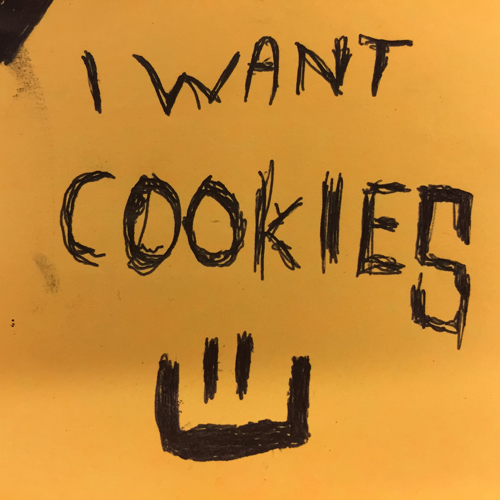 I WANT
COOKIES